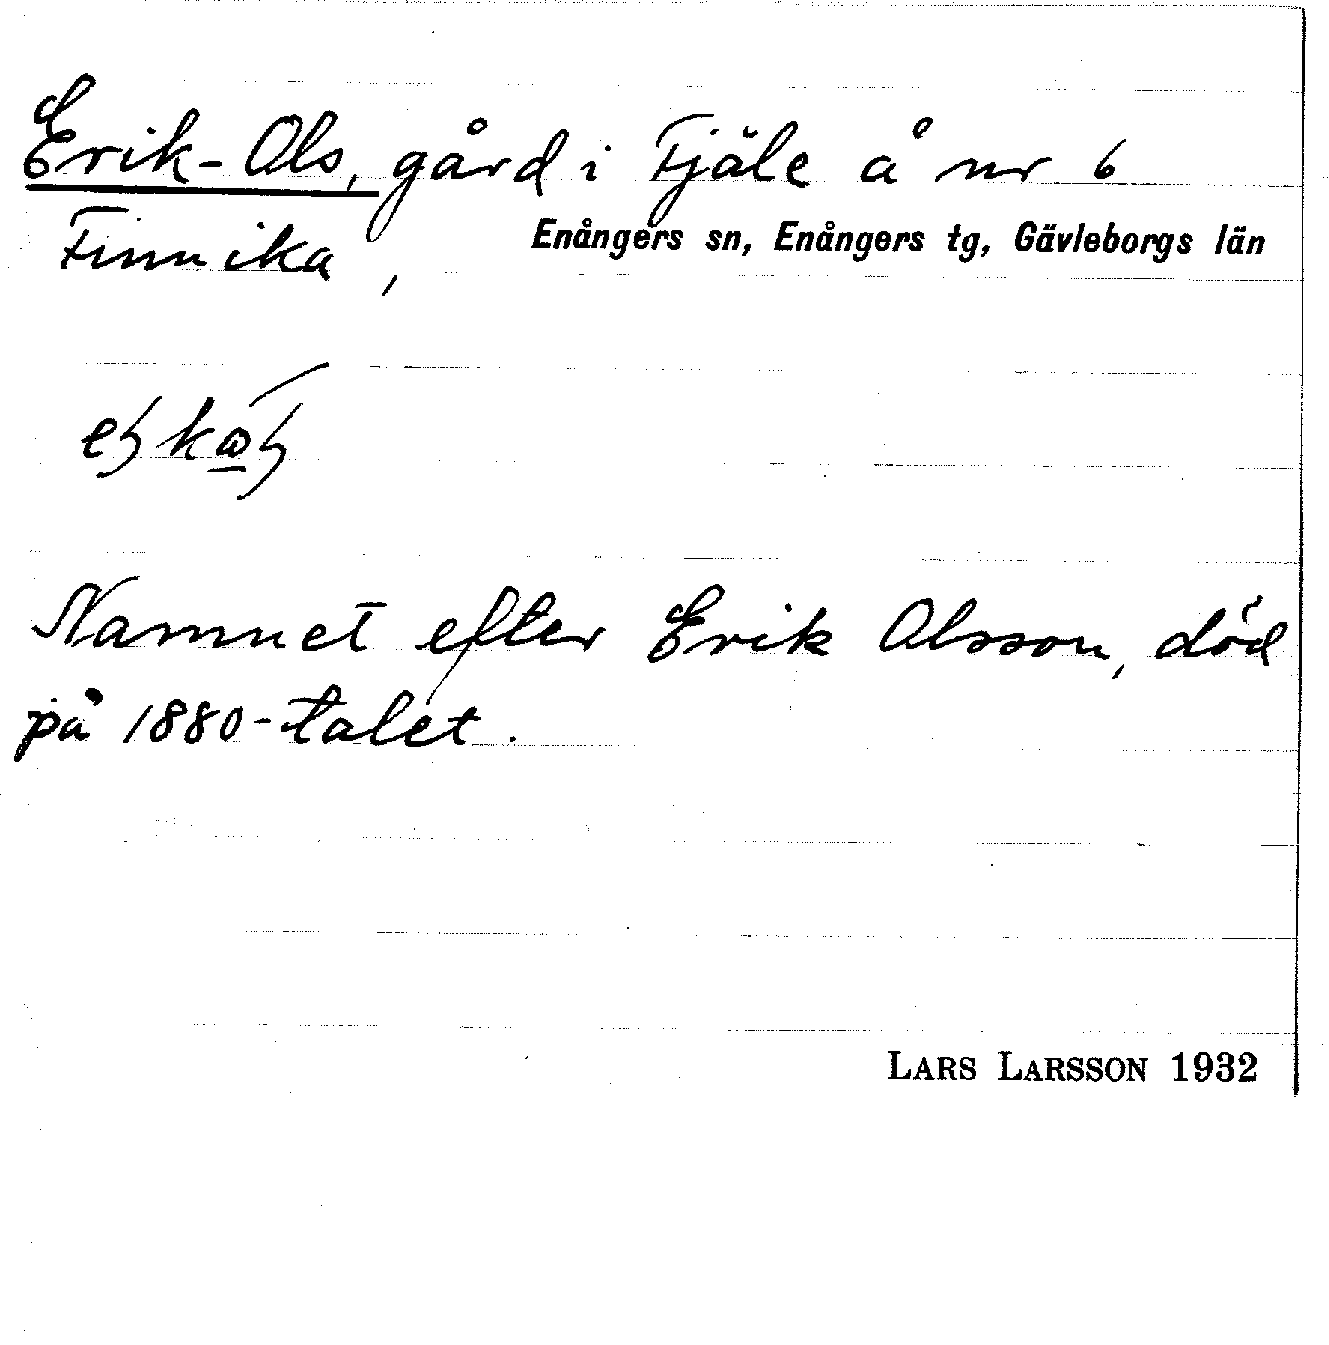 Erik-Ols, gård i Fjäle å nr 6
Finnika, Enångers sn, Enångers tg, Gävleborgs län
Namnet efter Erik Olsson, död
på 1880-talet.
LARS LARSSON 1932